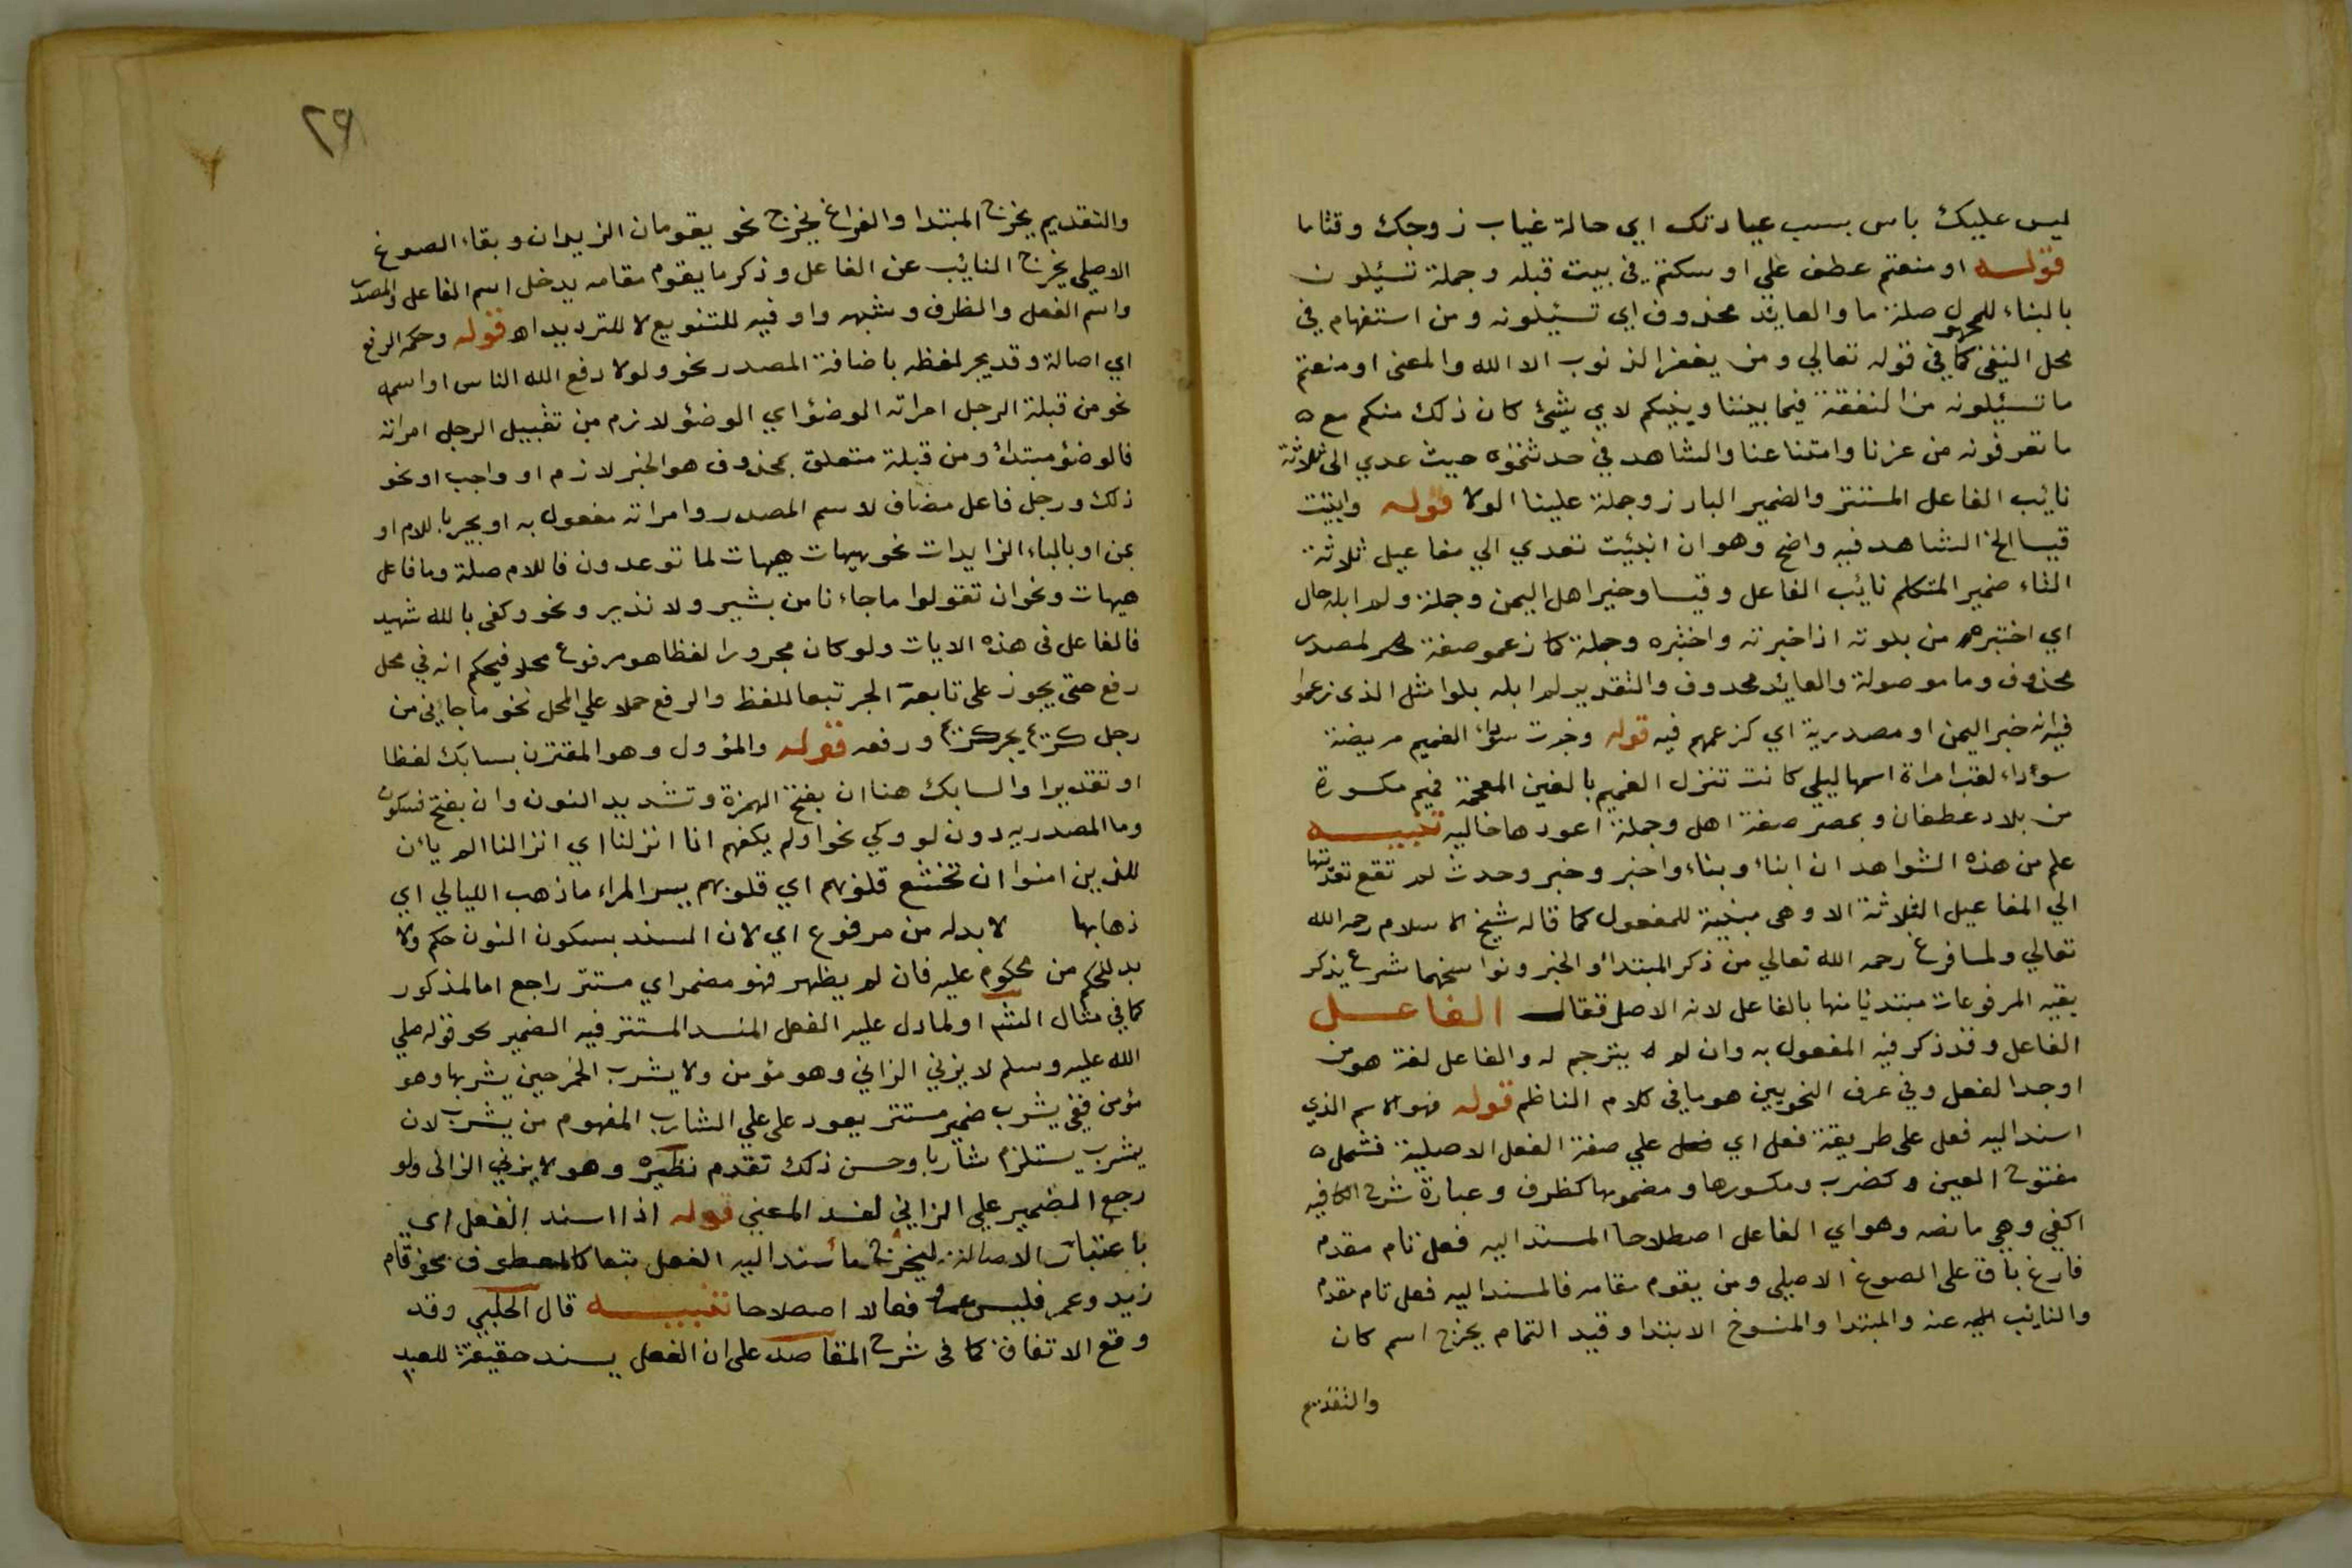 ليس عليك باس بسبب عيادتك اي حالة غياب زوجك وقتاما
قوله او منعتم عطف علي او سكنتم في بيت قبله وجملة تسئلون
بالبناء للمجهول صلة ما والعايد محذوف اي تسئيلونه ومن استفهام في
محل النفي كما في قوله تعالي ومن يغفر الذنوب الا الله والمعنى او منعتم
ما تسئيلونه من النفقة فيما بيننا وبينكم لاي شيئ كان ذلك منكم مع ه
ما تعرفونه من عزنا وامتناعنا والشاهد في حدثتموه حيث عدي الى ثلاثة
نايب الفاعل المستتر والضمير البارز وجملة علينا الولا قوله وانبئت
قيسا الخ الشاهد فيه واضح وهو ان انبئت تعدي الي مفاعيل ثلاثة
التاء ضمير المتكلم نايب الفاعل وقيسا وخير اهل اليمن وجملة ولم ابله حال
اي اختبره من بلوته اذا خبرته واختبره وجملة كما زعمو صفة لمصدر
محذوف وما موصولة والعايد محدوف والتقدير لم ابله بلوا مثل الذى زعموا
فيه انه خير اليمن او مصدرية اي كزعمهم فيه قوله وخبرت سوداء الغميم مريضة
سوداء لقب امراة اسمها ليلي كانت تنزل الغميم بالغين المعجمة فميم مكسورة
من بلاد غطفان وبمصر صفة اهل وجملة اعودها خاليه تنبيه
علم من هذه الشواهد ان انباء ونباء واخبر وخبر وحدث لم تقع تعديتها
الي المفاعيل الثلاثة الا وهى مبنية للمفعول كما قاله شيخ الاسلام رحمه الله
تعالي ولما فرغ رحمه الله تعالي من ذكر المبتداء والخبر ونواسخهما شرع يذكر
بقيه المرفوعات مبتديا منها بالفاعل لانه الاصل فقال الفاعل
الفاعل وقد ذكر فيه المفعول به وان لم يترجم له والفاعل لغة هو من
اوجد الفعل وفي عرف النحويين هو ما في كلام الناظم قوله فهو الاسم الذي
اسند اليه فعل على طريقة فعل اي فعل علي صفة الفعل الاصلية فشمل ه
مفتوح العين وكضرب ومكسورها ومضمومها كظرف وعبارة شرح الكافيه
اكفي وهي ما نصه وهو اي الفاعل اصطلاحا المسند اليه فعل تام مقدم
فارغ باق على الصوغ الاصيلي ومن يقوم مقامه فالمسند اليه فعل تام مقدم
والنايب عنه والمبتدا والمنسوخ الابتدا وقيد التمام يخرج اسم كان
والتقديم
٢٩
والتقديم يخرج المبتدا والفراغ يخرج نحو يقومان الزيدان وبقاء الصوغ
الاصلي يخرج النايب عن الفاعل وذكر ما يقوم مقامه يدخل اسم الفاعل والمصدر
واسم الفعل والظرف وشبهه واو فيه للتنويع لا للترديد اه قوله وحكمه الرفع
اي اصالة وقد يجر لفظه باضافة المصدر نحو ولولا دفع الله الناس او اسمه
نحو من قبلة الرجل امراته الوضؤ اي الوضؤ لازم من تقبيل الرجل امراته
فالوضؤ مبتداء ومن قبلة متعلق بمحذوف هو الخبر لازم او واجب او نحو
ذلك ورجل فاعل مضاف لاسم المصدر وامراته مفعول به او يجر باللام او
بمن او بالباء الزايدات نحو هيهات هيهات لما توعدون فاللام صلة وما فاعل
هيهات ونحو ان تقولوا ما جاءنا من بشير ولا نذير ونحو وكفى بالله شهيد
فالفاعل في هذه الايات ولو كان مجرورا لفظا هو مرفوع محلا فيحكم انه في محل
رفع حتى يجوز على تابعه الجر تبعا للفظ والرفع حملا علي المحل نحو ما جاءني من
رجل كريم بجر كريم ورفعه قوله والمؤول وهو المقترن بسابك لفظا
او تقديرا والسابك هنا ان بفتح الهمزة وتشديد النون وان بفتح فسكون
وما المصدريه دون لو وكي نحو اولم يكفهم انا انزلنا اي انزالنا الم يائن
للذين امنوا ان تخشع قلوبهم اي قلوبهم يسر المراء ما ذهب الليالي اي
ذهابها لا بد له من مرفوع اي لان المسند بسكون النون حكم ولا
بد للحكم من محكوم عليه فان لم يظهر فهو مضمر اي مستتر راجع اما لمذكور
كما في مثال الشم او لما دل عليه الفعل المسند المستتر فيه الضمير نحو قوله صلي
الله عليه وسلم لا يزني الزاني وهو مؤمن ولا يشرب الخمر حين يشربها وهو
مؤمن ففي يشرب ضمير مستتر يعود على علي الشارب المفهوم من يشرب لان
يشرب يستلزم شاربا وحسن ذلك تقدم نظيره وهو لا يزني الزانى ولو
رجع الضمير علي الزاني لفسد المعني قوله اذا اسند الفعل اي
باعتبار الاصالة ليخرج ما اسند اليه الفعل تبعا كالمعطوف نحو قام
زيد وعمر فليس عمرو فعالا اصطلاحا تنبيه قال الحلبي وقد
وقع الاتفاق كما فى شرح المقاصد على ان الفعل يسند حقيقة للعبد